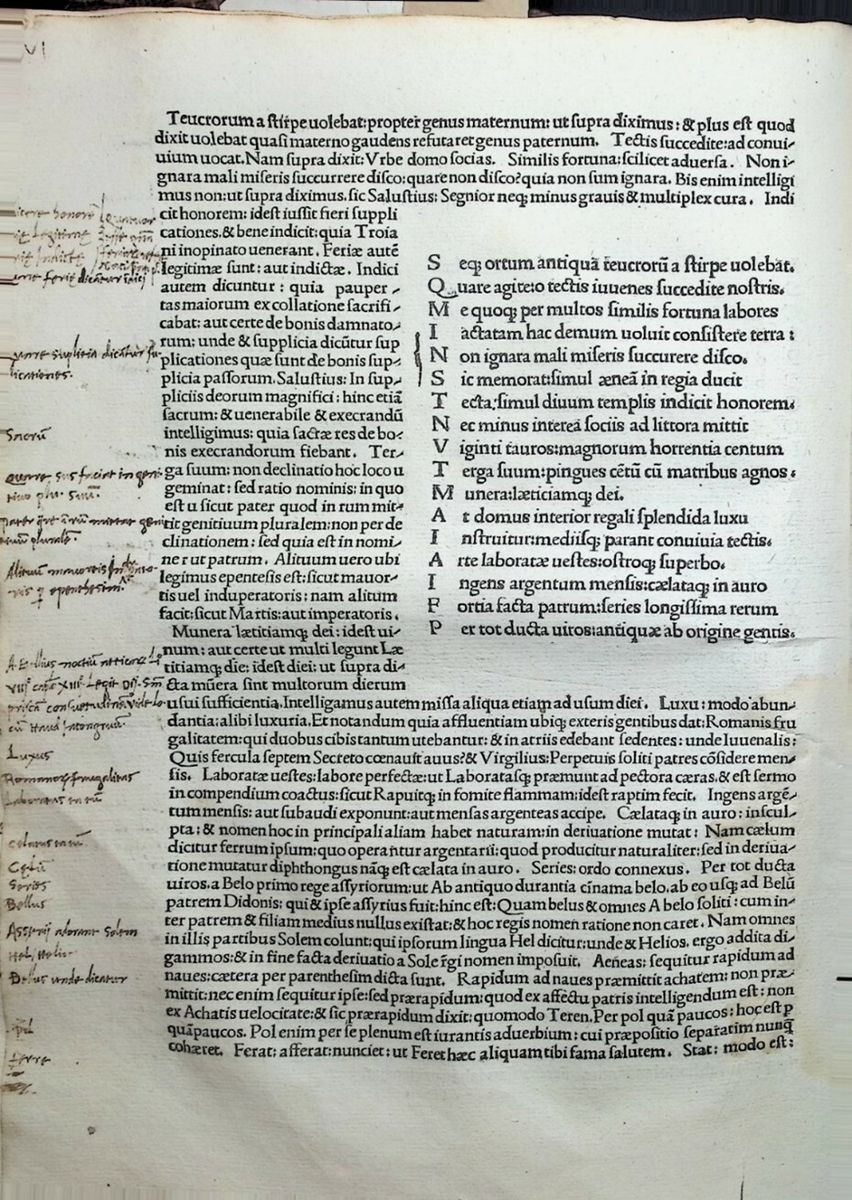 VI
Teucrorum a stirpe uolebat: propter genus maternum: ut supra diximus: & plus est quod
dixit uolebat quasi materno gaudens refutaret genus paternum. Tectis succedite: ad conui-
uium uocat. Nam supra dixit: Vrbe domo socias. Similis fortuna: scilicet aduersa. Non i-
gnara mali miseris succurrere disco: quare non disco? quia non sum ignara. Bis enim intelligi
mus non: ut supra diximus. sic Salustius: Segnior neq; minus grauis & multiplex cura. Indi
cit honorem: idest iussit fieri suppli
cationes. & bene indicit: quia Troia
ni inopinato uenerant. Feriæ autē
legitimæ sunt: aut indictæ. Indici
autem dicuntur: quia pauper-
tas maiorum ex collatione sacrifi-
cabat: aut certe de bonis damnato-
rum: unde & supplicia dicūtur sup
plicationes quæ sunt de bonis sup-
plicia passorum. Salustius: In sup-
pliciis deorum magnifici: hinc etiā
sacrum: & uenerabile & execrandū
intelligimus: quia sacræ res de bo-
nis execrandorum fiebant. Ter-
ga suum: non declinatio hoc loco u
geminat: sed ratio nominis: in quo
est u sicut pater quod in rum mit-
tit genitiuum pluralem: non per de
clinationem: sed quia est in nomi-
ne r ut patrum. Alituum uero ubi
legimus epentesis est: sicut mauor-
tis uel induperatoris: nam alitum
facit: sicut Martis: aut imperatoris.
Munera lætitiamq; dei: idest ui-
num: aut certe ut multi legunt Læ
titiamq; die: idest diei: ut supra di-
cta mūera sint multorum dierum
S eq; ortum antiquā teucrorū a stirpe uolebat.
Q uare agite: o tectis iuuenes succedite nostris.
M e quoq; per multos similis fortuna labores
I actatam hac demum uoluit consistere terra:
N on ignara mali miseris succurere disco.
S ic memorat: simul æneā in regia ducit
T ecta: simul diuum templis indicit honorem.
N ec minus interea sociis ad littora mittit
V iginti tauros: magnorum horrentia centum
T erga suum: pingues cētū cū matribus agnos.
M unera: læticiamq; dei.
A t domus interior regali splendida luxu
I nstruitur: mediisq; parant conuiuia tectis.
A rte laboratæ uestes: ostroq; superbo.
I ngens argentum mensis: cælataq; in auro
F ortia facta patrum: series longissima rerum
P er tot ducta uiros: antiquæ ab origine gentis.
usui sufficientia. Intelligamus autem missa aliqua etiam ad usum diei. Luxu: modo abun-
dantia: alibi luxuria. Et notandum quia affluentiam ubiq; exteris gentibus dat: Romanis fru
galitatem: qui duobus cibis tantum utebantur: & in atriis edebant sedentes: unde Iuuenalis:
Quis fercula septem Secreto cœnauit auus? & Virgilius: Perpetuis soliti patres cōsidere men-
sis. Laboratæ uestes: labore perfectæ: ut Laboratasq; præmunt ad pectora cæras. & est sermo
in compendium coactus: sicut Rapuitq; in fomite flammam: idest raptim fecit. Ingens argē-
tum mensis: aut subaudi exponunt: aut mensas argenteas accipe. Cælataq; in auro: inscul-
pta: & nomen hoc in principali aliam habet naturam: in deriuatione mutat: Nam cælum
dicitur ferrum ipsum: quo operantur argentarii: quod producitur naturaliter: sed in deriua-
tione mutatur diphthongus nāq; est cælata in auro. Series: ordo connexus. Per tot ducta
uiros. a Belo primo rege assyriorum: ut Ab antiquo durantia cinama belo. ab eo usq; ad Belū
patrem Didonis: qui & ipse assyrius fuit: hinc est: Quam belus & omnes A belo soliti: cum in-
ter patrem & filiam medius nullus existat: & hoc regis nomen ratione non caret. Nam omnes
in illis partibus Solem colunt: qui ipsorum lingua Hel dicitur: unde & Helios. ergo addita di-
gammos: & in fine facta deriuatio a Sole rgi nomen imposuit. Aeneas: sequitur rapidum ad
naues: cætera per parenthesim dicta sunt. Rapidum ad naues præmittit achatem: non præ-
mittit: nec enim sequitur ipse: sed prærapidum: quod ex affectu patris intelligendum est: non
ex Achatis uelocitate: & sic prærapidum dixit: quomodo Teren. Per pol quā paucos: hoc est p
quā paucos. Pol enim per se plenum est iurantis aduerbium: cui præpositio separatim nunq̄
cohæret. Ferat: afferat: nunciet: ut Feret hæc aliquam tibi fama salutem. Stat: modo est:
Sacrū
Luxus
Romanorū frugalitas
Series
Bellus
Assirij adorant solem
Hel. Helios
Bellus unde dicatur